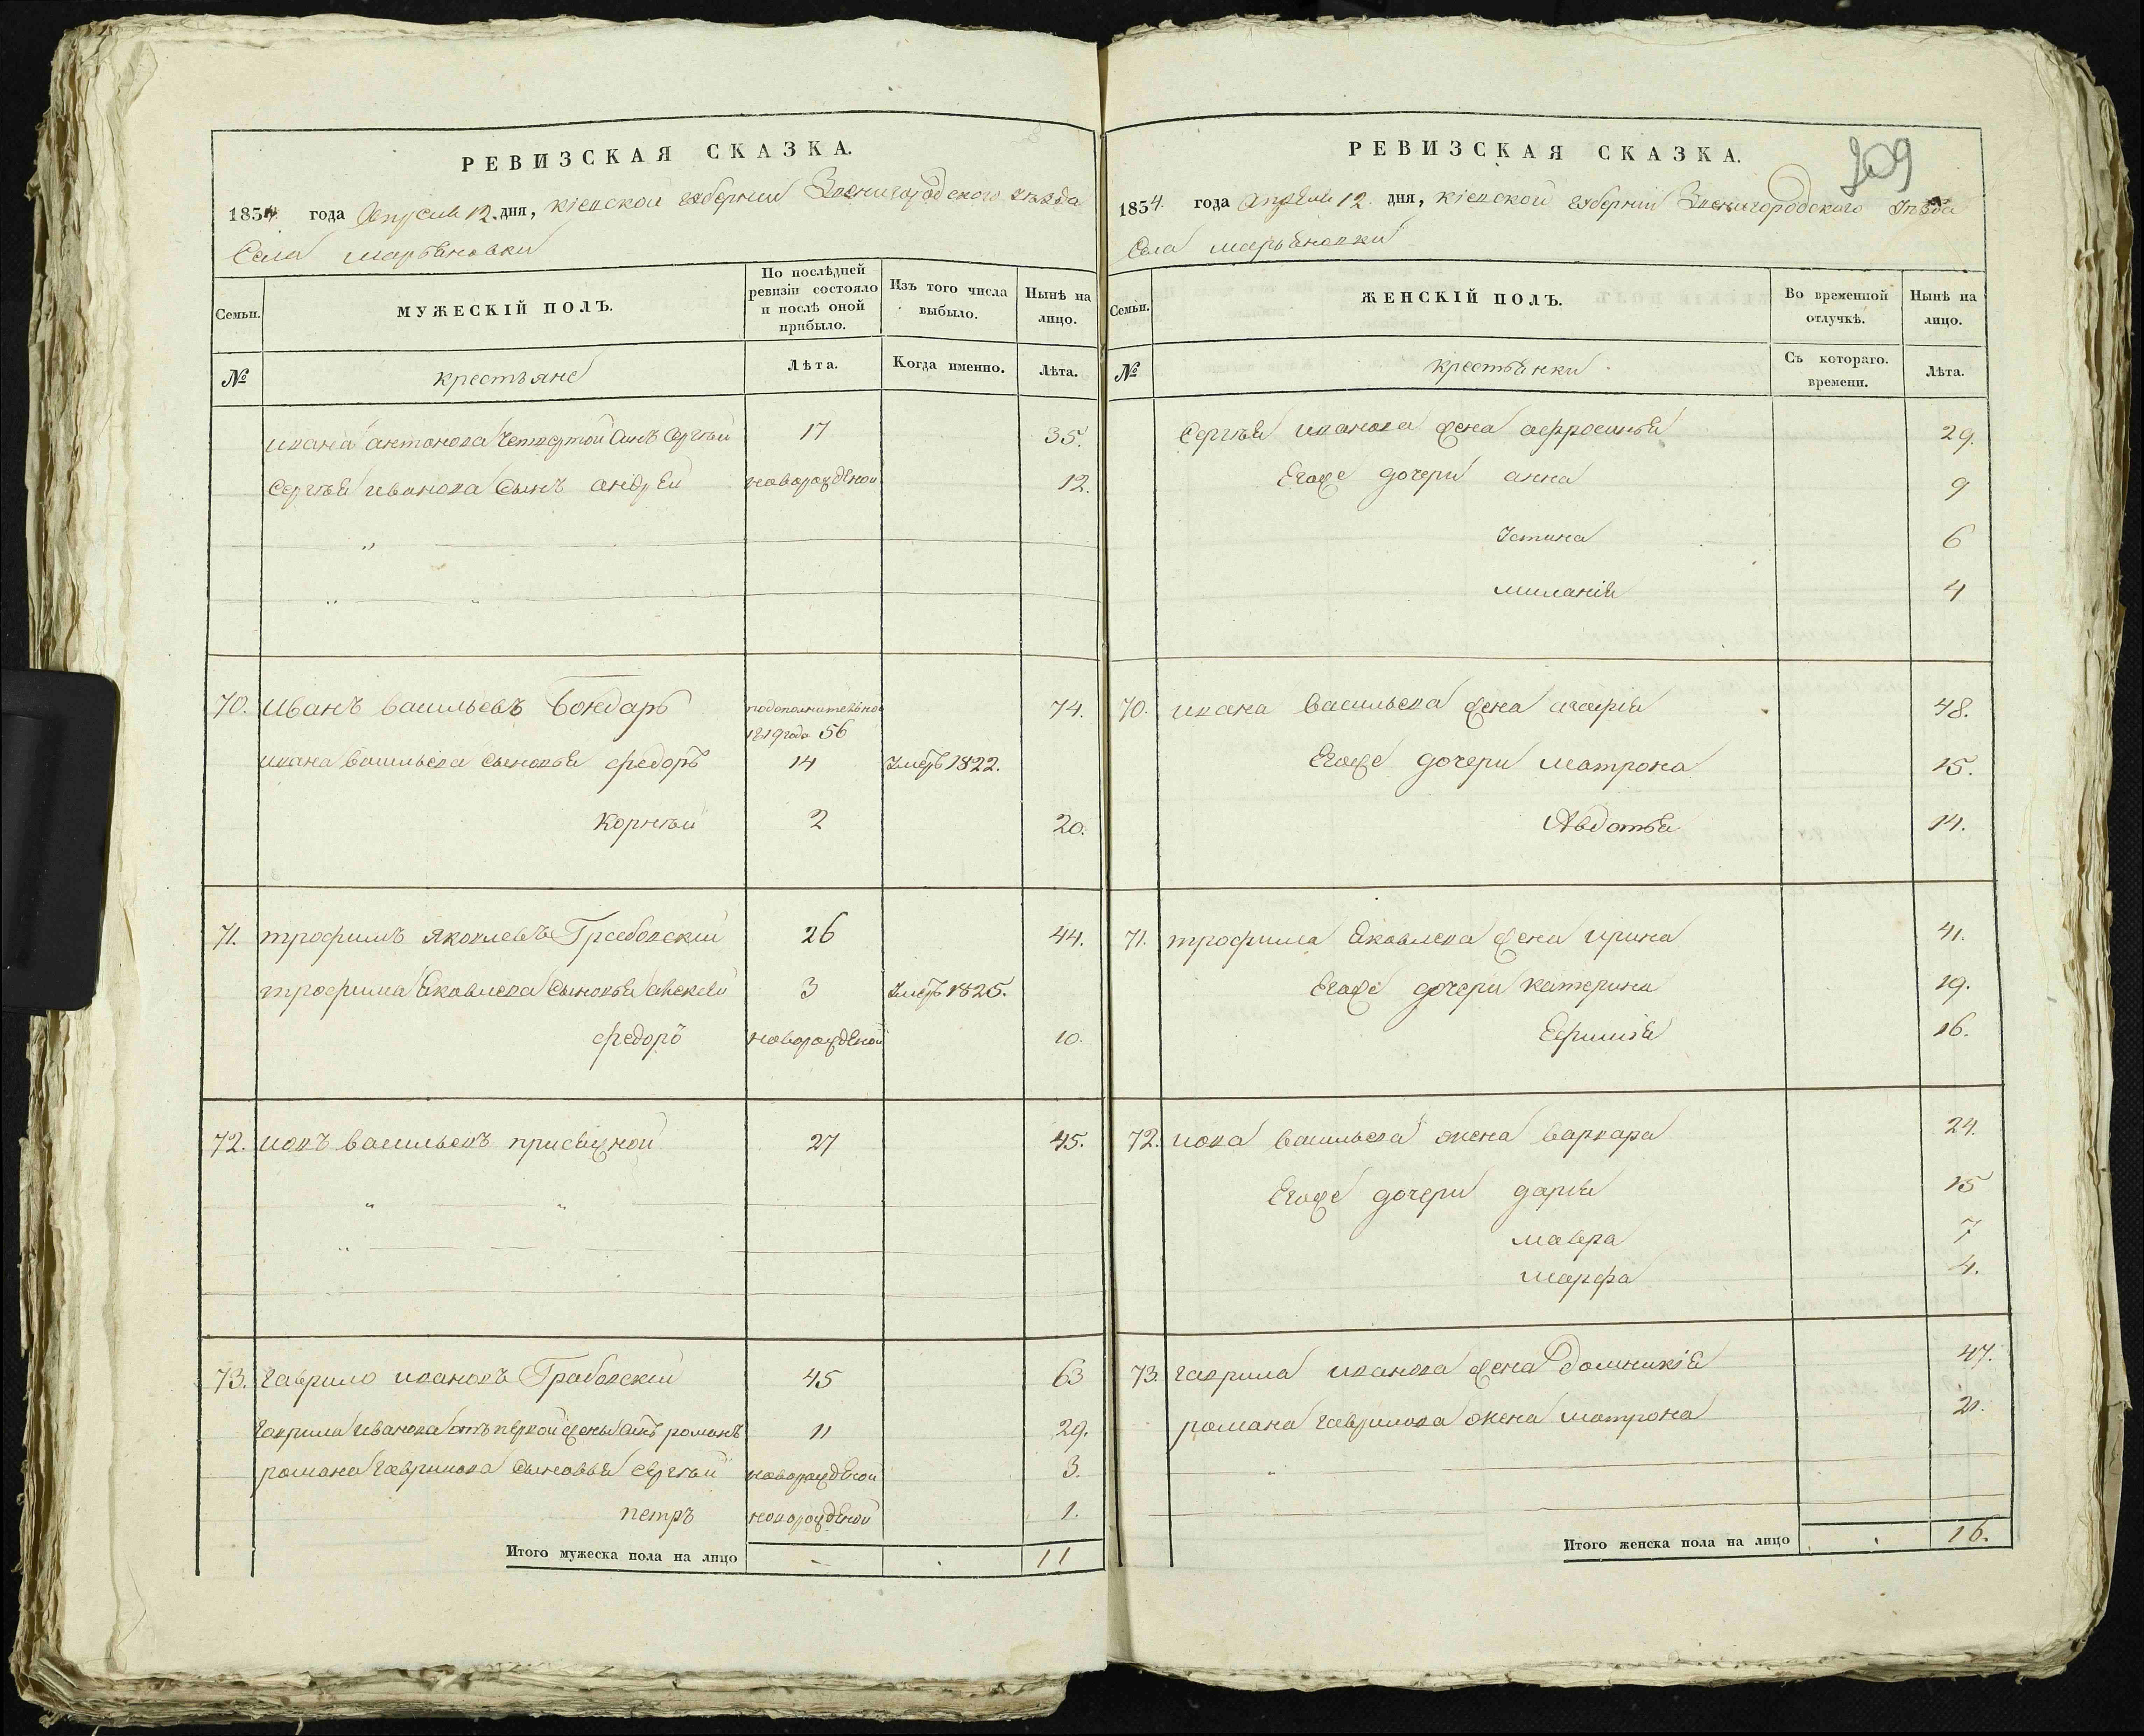 РЕВИЗСКАЯ СКАЗКА.
1834 года Апреля 12 дня, Кіевской губерніи Звенигородского уѣзда
Села Марьяновки
Семьи.
МУЖЕСКІЙ ПОЛЪ.
По послѣдней ревизіи состояло и послѣ оной прибыло.
Изъ того числа выбыло.
Нынѣ на лицо.
№ крестьяне Лѣта. Когда именно. Лѣта.
ивана антонова четвертой Сынъ Сергѣй 17 35.
Сергѣя иванова Сынъ андрей новорожденой 12.
70. Иванъ васильевъ Бондарь подополнительной 1819 года 56 74.
ивана васильева сыновья федоръ 14 умеръ 1822.
Корнѣй 2 20.
71. трофимъ яковлевъ Грабовскій 26 44.
трофима яковлева сыновья алексей 3 умеръ 1825.
федоръ новорожденой 10.
72. иовъ васильевъ присяжной 27 45.
73. гаврило ивановъ Грабовскій 45 63
гаврила иванова отъ первой жены Сынъ романъ 11 29.
романа гаврилова сыновья сергѣй новорожденой 3.
петръ новорожденой 1.
Итого мужеска пола на лицо 11
209
РЕВИЗСКАЯ СКАЗКА.
1834. года Апреля 12 дня, Кіевской губерніи Звенигородского уѣзда
Села Марьяновки
Семьи.
ЖЕНСКІЙ ПОЛЪ.
Во временной отлучкѣ.
Нынѣ на лицо.
№ крестьянки Съ котораго. времени. Лѣта.
Сергѣя иванова жена афросинья 29.
Егоже дочери анна 9
Устина 6
миланія 4
70. ивана васильева жена марія 48.
Егоже дочери матрона 15.
Авдотья 14.
71. трофима яковлева жена ирина 41.
Егоже дочери катерина 19.
Ефимія 16.
72. иова васильева жена варвара 24.
Егоже дочери дарья 15
мавра 7
марфа 4.
73. гаврила иванова жена домникія 47.
романа гаврилова жена матрона 21.
Итого женска пола на лицо 16.